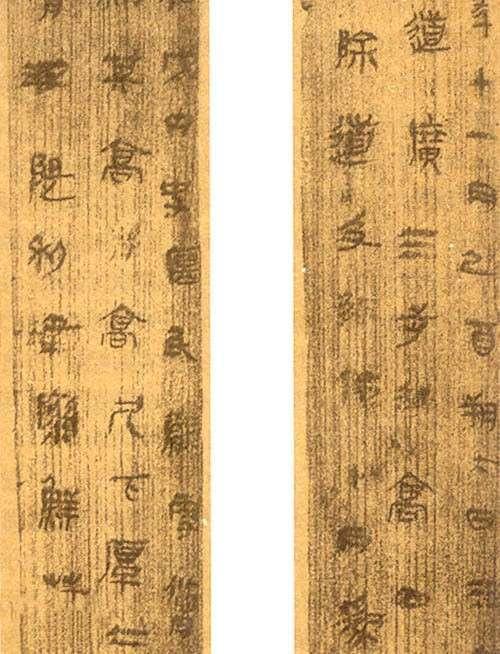 年十一月己酉朔朔二日王
道廣三步封高四
除道及阪險十月為
戊内史匽民臂更脩
其高捋高尺下厚二
波隄利津梁鮮草